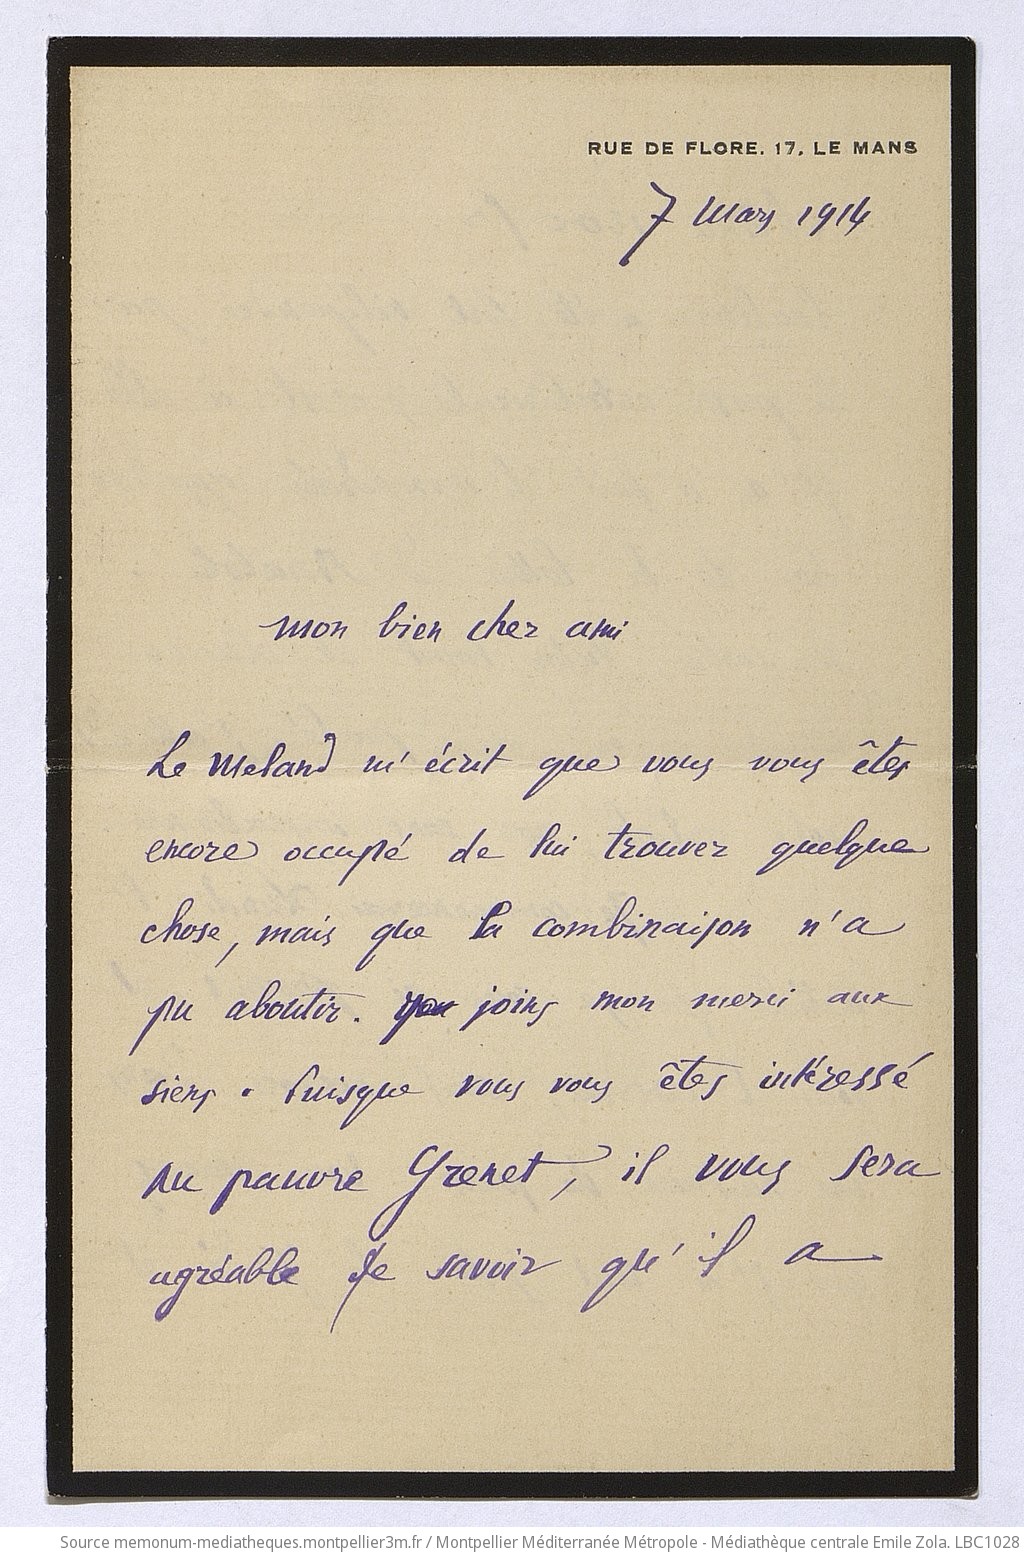 RUE DE FLORE. 17, LE MANS
7 Mars 1914
mon bien cher ami
Le Meland m'écrit que vous vous êtes
encore occupé de lui trouver quelque
chose, mais que la combinaison n'a
pu aboutir. joins mon merci aux
siens. Puisque vous vous êtes intéressé
au pauvre Grenet, il vous sera
agréable de savoir qu'il a
Source memonum-mediatheques.montpellier3m.fr / Montpellier Méditerranée Métropole - Médiathèque centrale Emile Zola. LBC1028